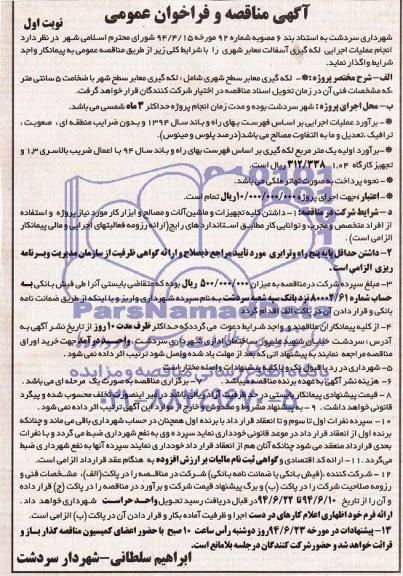 آگهی مناقصه و فراخوان عمومی
نوبت اول
شهرداری سردشت به استناد بند ۶ مصوبه شماره ۹۲ مورخه ۹۴/۴/۱۵ شورای محترم اسلامی شهر در نظر دارد
انجام عملیات اجرایی لکه گیری آسفالت معابر شهری را با شرایط کلی زیر از طریق مناقصه عمومی به پیمانکار واجد
شرایط واگذار نماید.
الف- شرح مختصر پروژه: *- لکه گیری معابر سطح شهری شامل : لکه گیری معابر سطح شهر با ضخامت ۵ سانتی متر
که مشخصات فنی آن در زمان تحویل اسناد مناقصه در اختیار شرکت کنندگان قرار خواهد گرفت.
ب- محل اجرای پروژه: شهر سردشت بوده و مدت زمان انجام پروژه حداکثر ۳ ماه شمسی می باشد.
*- برآورد عملیات اجرایی بر اساس فهرست بهای راه و باند سال ۱۳۹۴ و بدون ضرایب منطقه ای ، صعوبت ،
ترافیک ،تعدیل و ما به التفاوت مصالح می باشد(درصد پلوس و مینوس).
*- برآورد اولیه یک متر مربع لکه گیری بر اساس فهرست بهای راه و باند سال ۹۴ با اعمال ضریب بالاسری ۱.۳ و
تجهیز کارگاه ۱.۰۴ ۳۱۲/۳۳۸ ریال است.
*- نحوه پرداخت به صورت تهاتر ملکی می باشد.
*- اعتبار جهت اجرای پروژه ۱۰/۰۰۰/۰۰۰/۰۰۰ ریال تمام است.
د- شرایط شرکت در مناقصه: ۱- داشتن کلیه تجهیزات و ماشین آلات و مصالح و ابزار کار مورد نیاز پروژه و استفاده
از افراد متخصص و مجرب و توانایی کار مطابق استاندارد های رایج(ارائه رزومه فعالیتهای اجرایی و مالی پیمانکار
الزامی است)
۲- داشتن حداقل پایه پنج راه و ترابری مورد تأیید مراجع ذیصلاح و ارائه گواهی ظرفیت از سازمان مدیریت و برنامه
ریزی الزامی است.
۳- مبلغ سپرده شرکت در مناقصه به میزان ۵۰۰/۰۰۰/۰۰۰ ریال بوده که متقاضی بایستی آنرا طی فیش بانکی به
حساب شماره ۸۰۰۰۲/۶۱ نزد بانک سپه شعبه سردشت به نام سپرده شهرداری واریز و یا اینکه از طریق ضمانت نامه
بانکی و قرار دادن آن در پاکت الف اقدام گردد
۴- از کلیه پیمانکاران علاقمند و واجد شرایط دعوت می گردد که حداکثر ظرف مدت ۱۰ روز از تاریخ نشر آگهی به
آدرس : سردشت خیابان شهید ساختمان اداری شهرداری سردشت واحد جهت خرید اوراق
مناقصه مراجعه نمایند به پیشنهاداتی که بعد از مهلت یاد شده واصل شود ترتیب اثر داده نمی شود.
۵- شهرداری در رد یا قبول یک یا کلیه پیشنهادات واصله مختار است.
۶- هزینه نشر آگهی به عهده برنده مناقصه میباشد. ۷- برگزاری مناقصه به صورت یک مرحله ای می باشد.
۸- قیمت پیشنهادی پیمانکار بایستی در حد ظرفیت قانونی آنان باشد در غیر اینصورت تخلف محسوب شده و پیگرد
قانونی خواهد داشت . ۹- به پیشنهاد مشروط و مخدوش و خارج از موارد این آگهی ترتیب اثر داده نمی شود.
۱۰- سپرده نفرات اول تا سوم و تا انعقاد قرار داد با برنده اول همچنان در حساب شهرداری باقی می ماند و چنانچه
برنده اول از انعقاد قرار داد در موعد قانونی خودداری نماید سپرده وی به نفع شهرداری ضبط می گردد و با نفرات
بعدی قرارداد منعقد می شود چنانکه آنان هم از انعقاد قرار داد خودداری نمایند سپرده آنها به نفع شهرداری ضبط
می گردد. ۱۱- ارائه کد اقتصادی و گواهی ثبت نام مالیات بر ارزش افزوده به هنگام عقد قرارداد الزامی است.
۱۲- شرکت کننده ،(فیش بانکی یا ضمانت نامه بانکی) شرکت در مناقصه را در پاکت(الف)، مشخصات فنی و
رزومه صلاحیت شرکت را در پاکت (ب) و برگ پیشنهاد قیمت شرکت و برآورد در مناقصه را در پاکت (ج) قرار داده
و آن را از تاریخ ۹۴/۶/۱۰ تا ۹۴/۶/۲۲ در قبال دریافت رسید تحویل واحد حراست شهرداری خواهد داد .
ارائه فرم خود اظهاری اعلام کارهای در دست اجرا و ظرفیت آماده بکار و قرار دادن آن در پاکت (ب) الزامی است.
۱۳- پیشنهادات در مورخه ۹۴/۶/۲۳ روز دوشنبه رأس ساعت ۱۰ صبح با حضور اعضای کمیسیون مناقصه گذار باز و
قرائت خواهد شد و حضور شرکت کنندگان در جلسه بلامانع است.
ابراهیم سلطانی- شهردار سردشت
ParsNamadData
۰۲۱-۸۸۳۴۹۶۷۰-۵